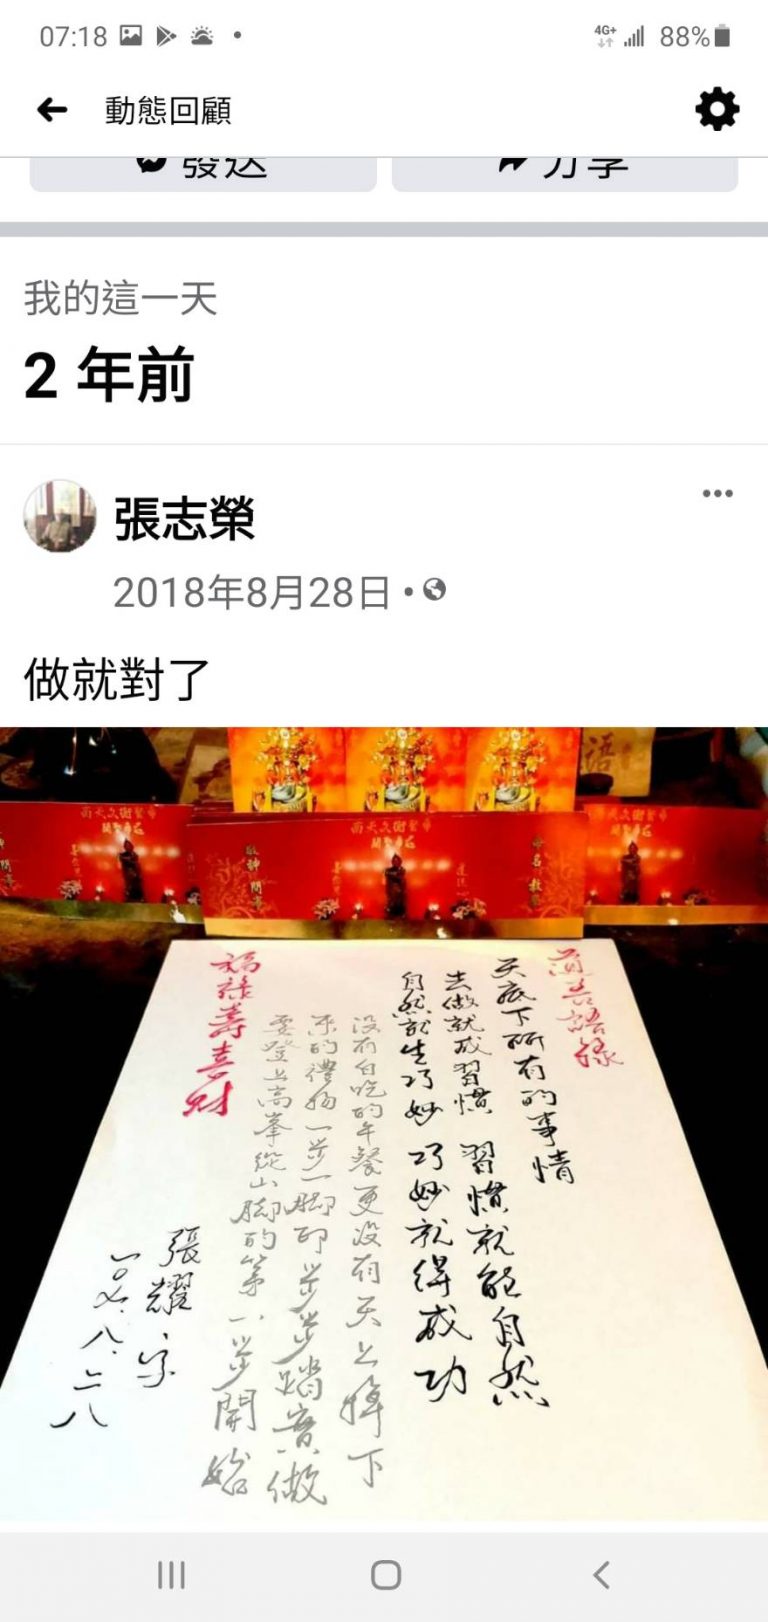 07:18
4G+
88%
動態回顧
發送
分享
我的這一天
2 年前
張志榮
2018年8月28日
做就對了
南天文衡聖帝
敬神 問事
命名 教
道善語錄
天底下所有的事情
去做就成習慣 習慣就能自然
自然就生巧妙 巧妙就得成功
沒有白吃的午餐更沒有天上掉下
來的禮物一步一腳印步步踏實做
要登上高峯從山腳的第一步開始
福祿壽喜財
張耀字
一0七.八.二八